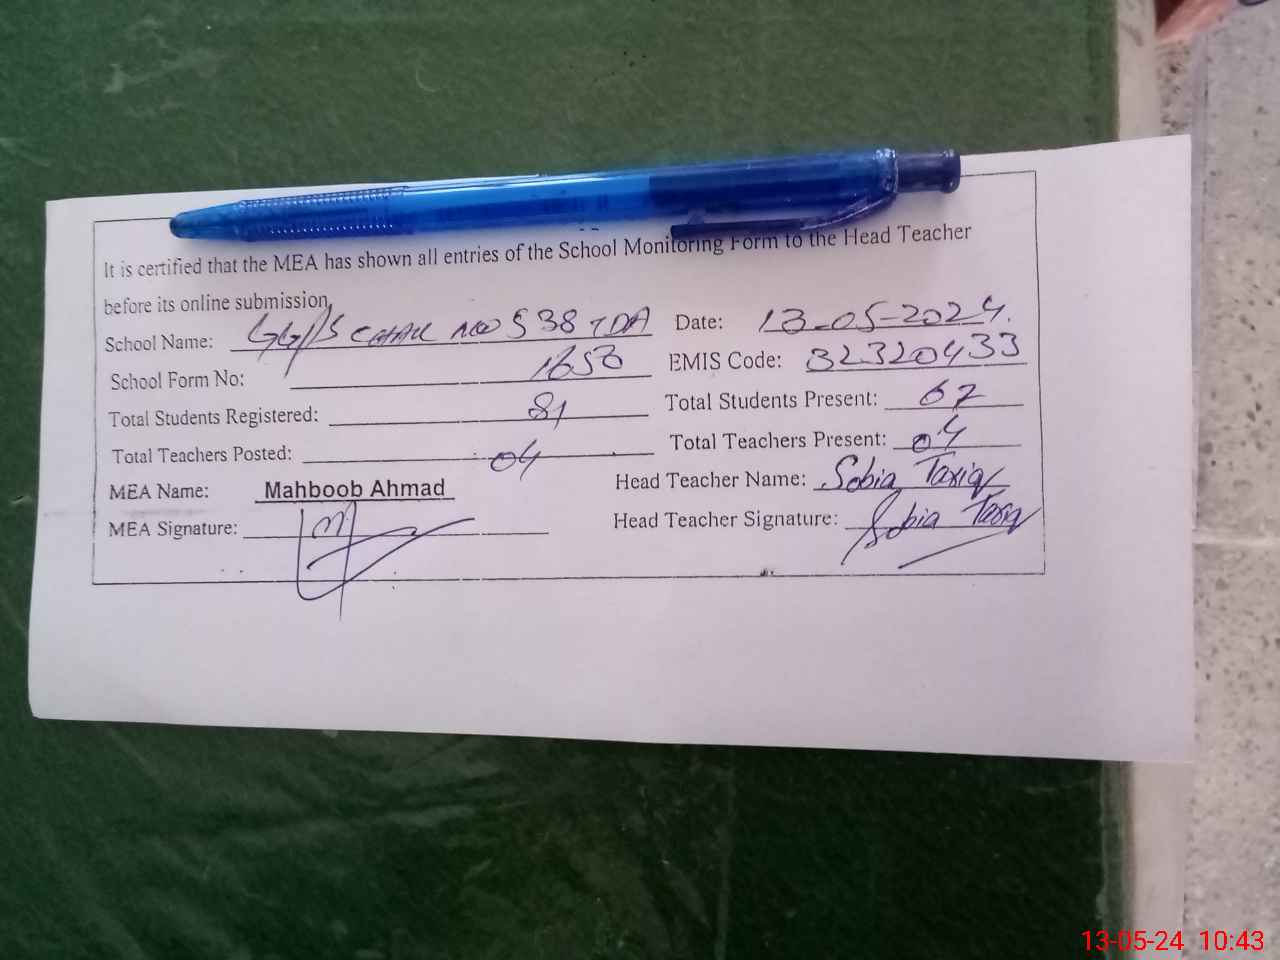 It is certified that the MEA has shown all entries of the School Monitoring Form to the Head Teacher
before its online submission
School Name: GG/PS CHAK NO 538 TDA Date: 13-05-2024.
School Form No: 1650 EMIS Code: 32320433
Total Students Registered: 81 Total Students Present: 67
Total Teachers Posted: 04 Total Teachers Present: 04
MEA Name: Mahboob Ahmad Head Teacher Name: Sobia Tariq
MEA Signature: Head Teacher Signature: Sobia Tariq
13-05-24 10:43